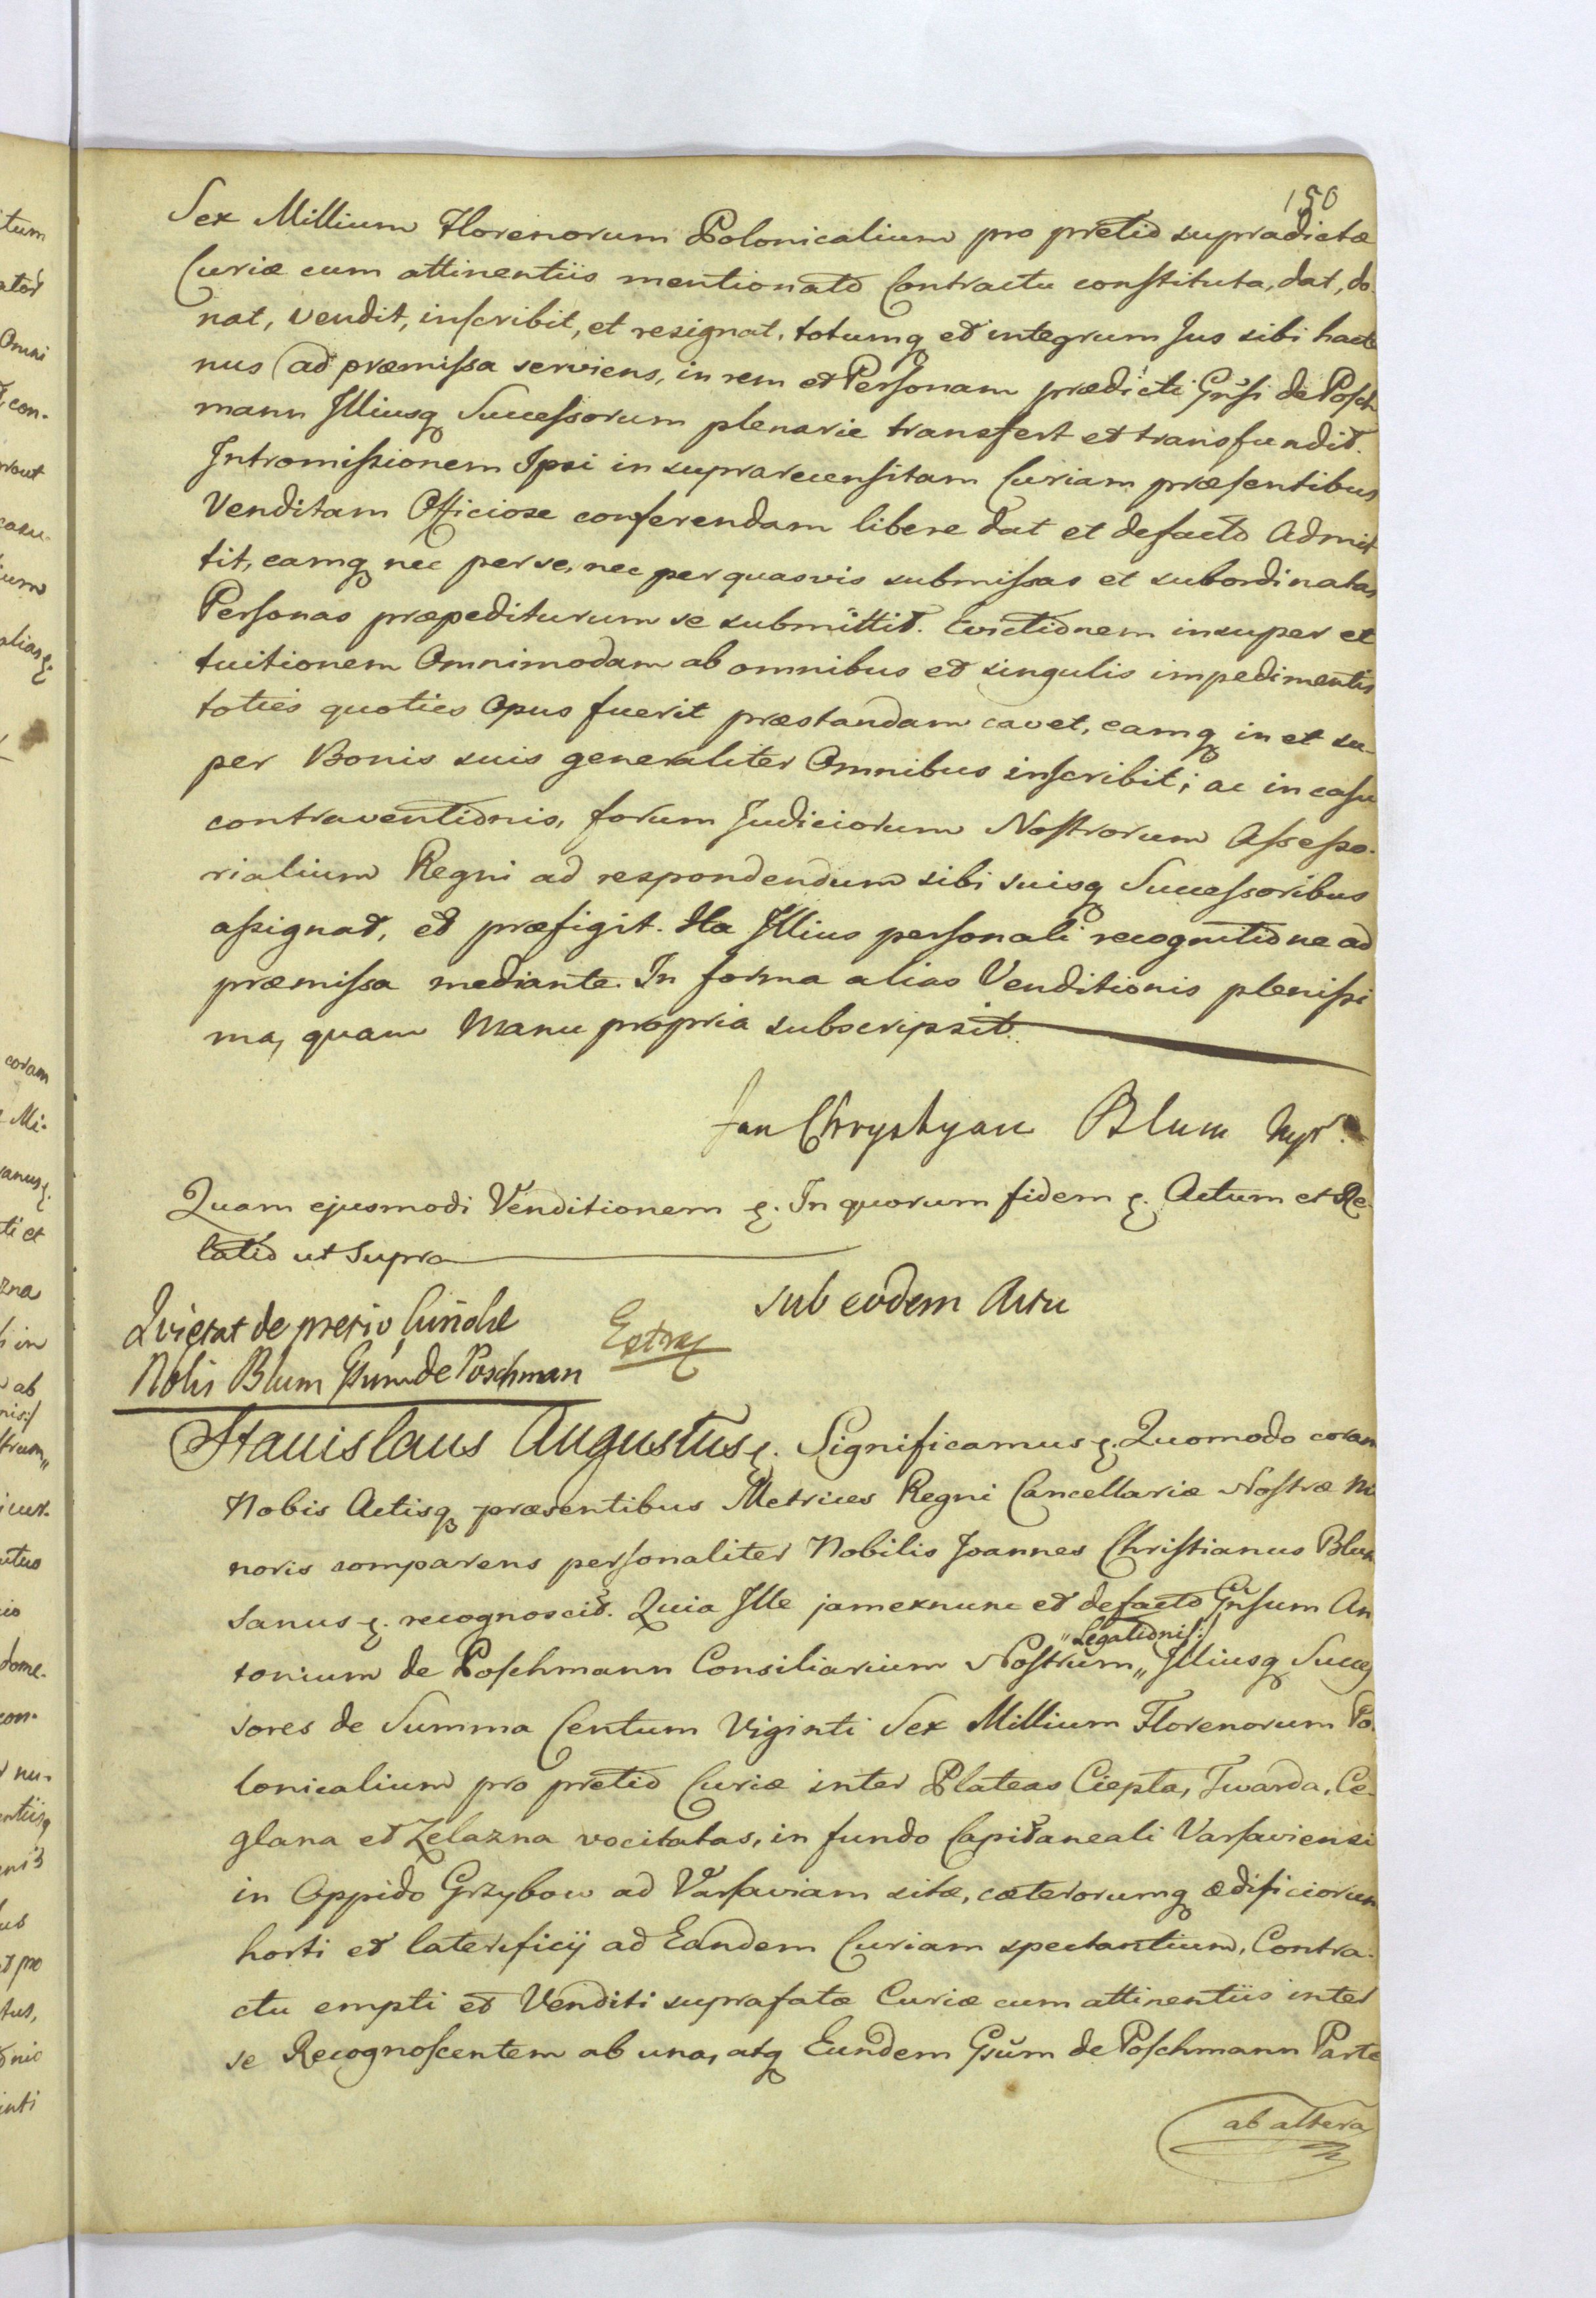 150
Sex Millium Florenorum Polonicalium pro pretio supradictæ
Curiæ cum attinentiis mentionato Contractu constituta, dat, do-
nat, vendit, inscribit, et resignat, totumq et integrum Jus sibi hacte
nus ad præmissa serviens, in rem et Personam prædicti Gnsi de Posch
mann Illiusq Successorum plenarie transfert et transfundit.
Intromissionem Ipsi in suprarecensitam Curiam præsentibus
Venditam Officiose conferendam libere dat et defacto Admit
tit, eamq nec per se, nec per quasvis submissas et subordinatas
Personas præpediturum se submittit. Evictionem insuper et
tuitionem Omnimodam ab omnibus et singulis impedimentis
toties quoties Opus fuerit præstandam cavet, eamq in et su-
per Bonis suis generaliter Omnibus inscribit; ac in casu
contraventionis, forum Judiciorum Nostrorum Assesso-
rialium Regni ad respondendum sibi suisq Successoribus
assignat, et præfigit. Ita Illius personali recognitione ad
præmissa mediante. In forma alias Venditionis plenissi
ma, quam Manu propria subscripsit.
Jan Chrystyan Blum mpr.
Quam ejusmodi Venditionem &. In quorum fidem &. Actum et Re-
latio ut supra
sub eodem Actu
Quietat de pretio Curiæ
Nobis Blum Gsum de Poschman
Extrax
Stanislaus Augustus &. Significamus &. Quomodo coram
Nobis Actisq præsentibus Metrices Regni Cancellariæ Nostræ Mi
noris comparens personaliter Nobilis Joannes Christianus Blum
sanus &. recognoscit. Quia Ille jamexnunc et defacto Gnsum An
„Legationis:/
tonium de Poschmann Consiliarium Nostrum„ Illiusq Succes
sores de Summa Centum Viginti Sex Millium Florenorum Po-
lonicalium pro pretio Curiæ inter Plateas Ciepta, Twarda, Ce-
glana et Zelazna vocitatas, in fundo Capitaneali Varsaviensi
in Oppido Grzybow ad Varsaviam sitæ, cæterorumq ædificiorum
horti et laterificij ad Eandem Curiam spectantium, Contra-
ctu empti et Venditi suprafatæ Curiæ cum attinentiis inter
se Recognoscentem ab una, atq Eundem Gsum de Poschmann Parte
ab altera